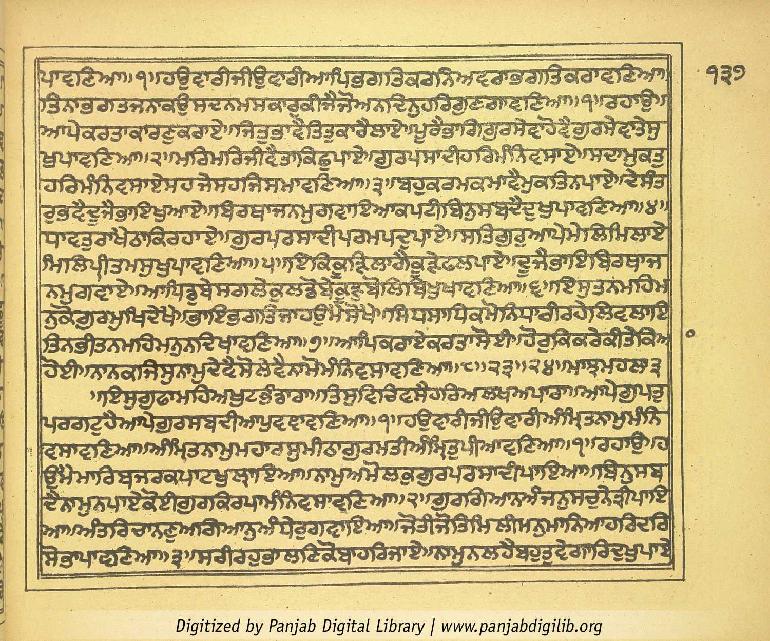 ਪਾਵਣਿਆ॥੧॥ਹਉਵਾਰੀਜੀਉਵਾਰੀਆਪਿਭਗਤਿਕਰਨਿਅਵਰਾਭਗਤਿਕਰਾਵਣਿਆ॥
ਤਿਨਾਭਗਤਜਨਾਕਉਸਦਨਮਸਕਾਰੁਕੀਜੈਜੋਅਨਦਿਨੁਹਰਿਗੁਣਗਾਵਣਿਆ॥੧॥ਰਹਾਉ॥
ਆਪੇਕਰਤਾਕਾਰਣੁਕਰਾਏ॥ਜਿਤੁਭਾਵੈਤਿਤੁਕਾਰੈਲਾਏ॥ਪੂਰੈਭਾਗਿਗੁਰਸੇਵਾਹੋਵੈਗੁਰਸੇਵਾਤੇਸੁ
ਖੁਪਾਵਣਿਆ॥੨॥ਮਰਿਮਰਿਜੀਵੈਤਾਕਿਛੁਪਾਏ॥ਗੁਰਪਰਸਾਦੀਹਰਿਮੰਨਿਵਸਾਏ॥ਸਦਾਮੁਕਤੁ
ਹਰਿਮੰਨਿਵਸਾਏਸਹਜੇਸਹਜਿਸਮਾਵਣਿਆ॥੩॥ਬਹੁਕਰਮਕਮਾਵੈਮੁਕਤਿਨਪਾਏ॥ਦੇਸੰਤ
ਰੁਭਵੈਦੂਜੈਭਾਇਖੁਆਏ॥ਬਿਰਥਾਜਨਮੁਗਵਾਇਆਕਪਟੀਬਿਨੁਸਬਦੈਦੁਖੁਪਾਵਣਿਆ॥੪॥
ਧਾਵਤੁਰਾਖੈਠਾਕਿਰਹਾਏ॥ਗੁਰਪਰਸਾਦੀਪਰਮਪਦੁਪਾਏ॥ਸਤਿਗੁਰੁਆਪੇਮੇਲਿਮਿਲਾਏ
ਮਿਲਿਪ੍ਰੀਤਮਸੁਖੁਪਾਵਣਿਆ॥੫॥ਇਕਿਕੂੜਿਲਾਗੇਕੂੜੇਫਲਪਾਏ॥ਦੂਜੈਭਾਇਬਿਰਥਾਜ
ਨਮੁਗਵਾਏ॥ਆਪਿਡੁਬੇਸਗਲੇਕੁਲਡੋਬੇਕੂੜੁਬੋਲਿਬਿਖੁਖਾਵਣਿਆ॥੬॥ਇਸੁਤਨਮਹਿਮ
ਨੁਕੋਗੁਰਮੁਖਿਦੇਖੈ॥ਭਾਇਭਗਤਿਜਾਹਉਮੈਸੋਖੈ॥ਸਿਧਸਾਧਿਕਮੋਨਿਧਾਰੀਰਹੇਲਿਵਲਾਇ
ਤਿਨਭੀਤਨਮਹਿਮਨੁਨਦਿਖਾਵਣਿਆ॥੭॥ਆਪਿਕਰਾਏਕਰਤਾਸੋਈ॥ਹੋਰੁਕਿਕਰੇਕੀਤੈਕਿਆ
ਹੋਈ॥ਨਾਨਕਜਿਸੁਨਾਮੁਦੇਵੈਸੋਲੇਵੈਨਾਮੋਮੰਨਿਵਸਾਵਣਿਆ॥੮॥੨੩॥੨੪॥ਮਾਝਮਹਲਾ੩
॥ਇਸੁਗੁਫਾਮਹਿਅਖੁਟਭੰਡਾਰਾ॥ਤਿਸੁਵਿਚਿਵਸੈਹਰਿਅਲਖਅਪਾਰਾ॥ਆਪੇਗੁਪਤੁ
ਪਰਗਟੁਹੈਆਪੇਗੁਰਸਬਦੀਆਪੁਵੰਞਾਵਣਿਆ॥੧॥ਹਉਵਾਰੀਜੀਉਵਾਰੀਅੰਮ੍ਰਿਤਨਾਮੁਮੰਨਿ
ਵਸਾਵਣਿਆ॥ਅੰਮ੍ਰਿਤਨਾਮੁਮਹਾਰਸੁਮੀਠਾਗੁਰਮਤੀਅੰਮ੍ਰਿਤੁਪੀਆਵਣਿਆ॥੧॥ਰਹਾਉ॥ਹ
ਉਮੈਮਾਰਿਬਜਰਕਪਾਟਖੁਲਾਇਆ॥ਨਾਮੁਅਮੋਲਕੁਗੁਰਪਰਸਾਦੀਪਾਇਆ॥ਬਿਨੁਸਬ
ਦੈਨਾਮੁਨਪਾਏਕੋਈਗੁਰਕਿਰਪਾਮੰਨਿਵਸਾਵਣਿਆ॥੨॥ਗੁਰਗਿਆਨਅੰਜਨੁਸਚੁਨੇਤ੍ਰੀਪਾਇ
ਆ॥ਅੰਤਰਿਚਾਨਣੁਅਗਿਆਨੁਅੰਧੇਰੁਗਵਾਇਆ॥ਜੋਤੀਜੋਤਿਮਿਲੀਮਨੁਮਾਨਿਆਹਰਿਦਰਿ
ਸੋਭਾਪਾਵਣਿਆ॥੩॥ਸਰੀਰਹੁਭਾਲਣਿਕੋਬਾਹਰਿਜਾਏ॥ਨਾਮੁਨਲਹੈਬਹੁਤੁਵੇਗਾਰਿਦੁਖੁਪਾਏ
੧੩੭
Digitized by Panjab Digital Library | www.panjabdigilib.org